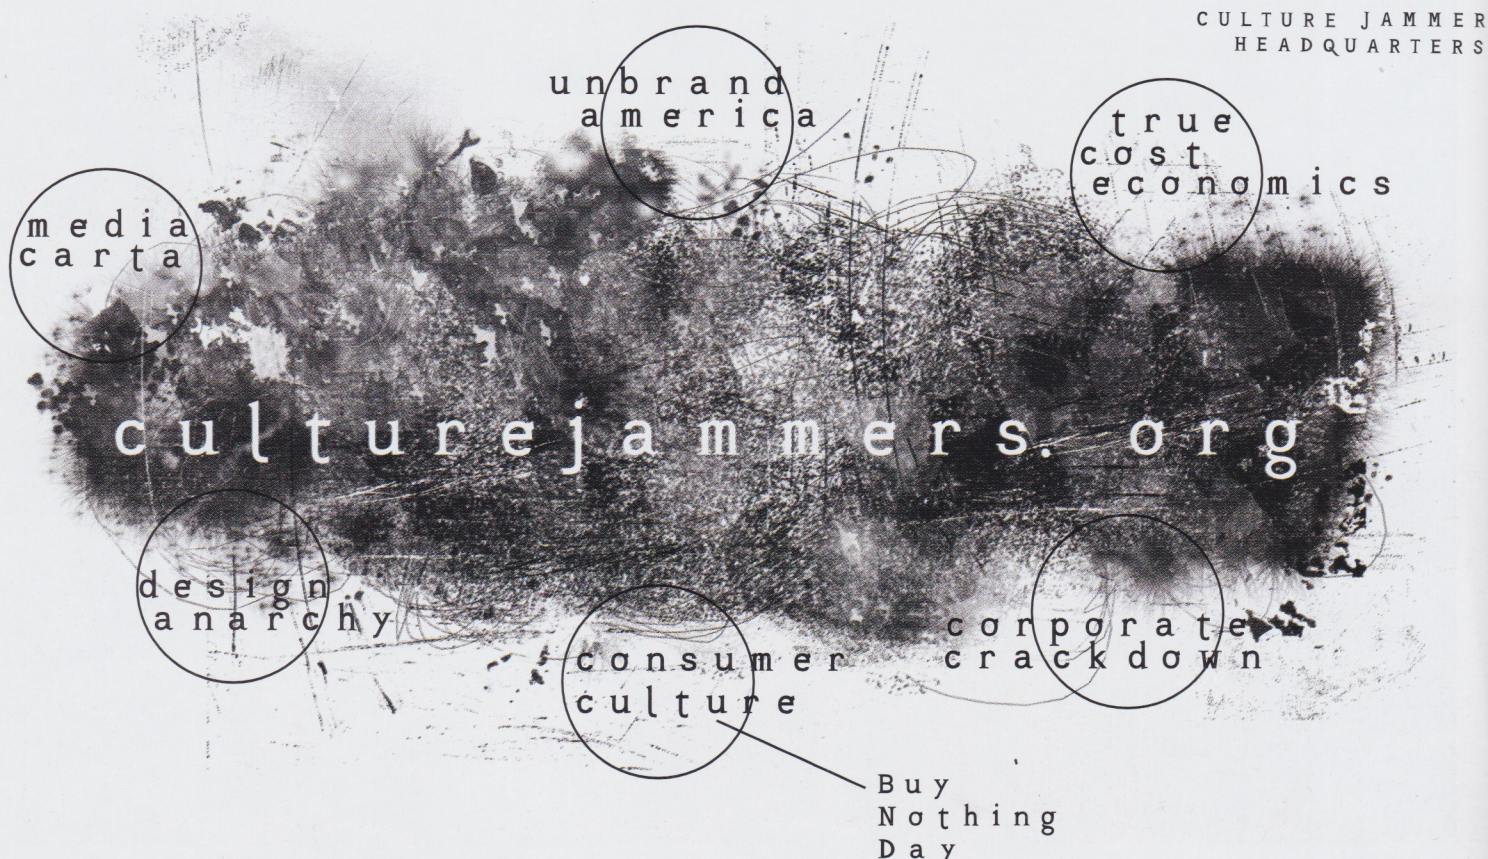 CULTURE JAMMER
HEADQUARTERS
unbrand
america
true
cost
economics
media
carta
culturejammers.org
design
anarchy
consumer
culture
corporate
crackdown
Buy
Nothing
Day